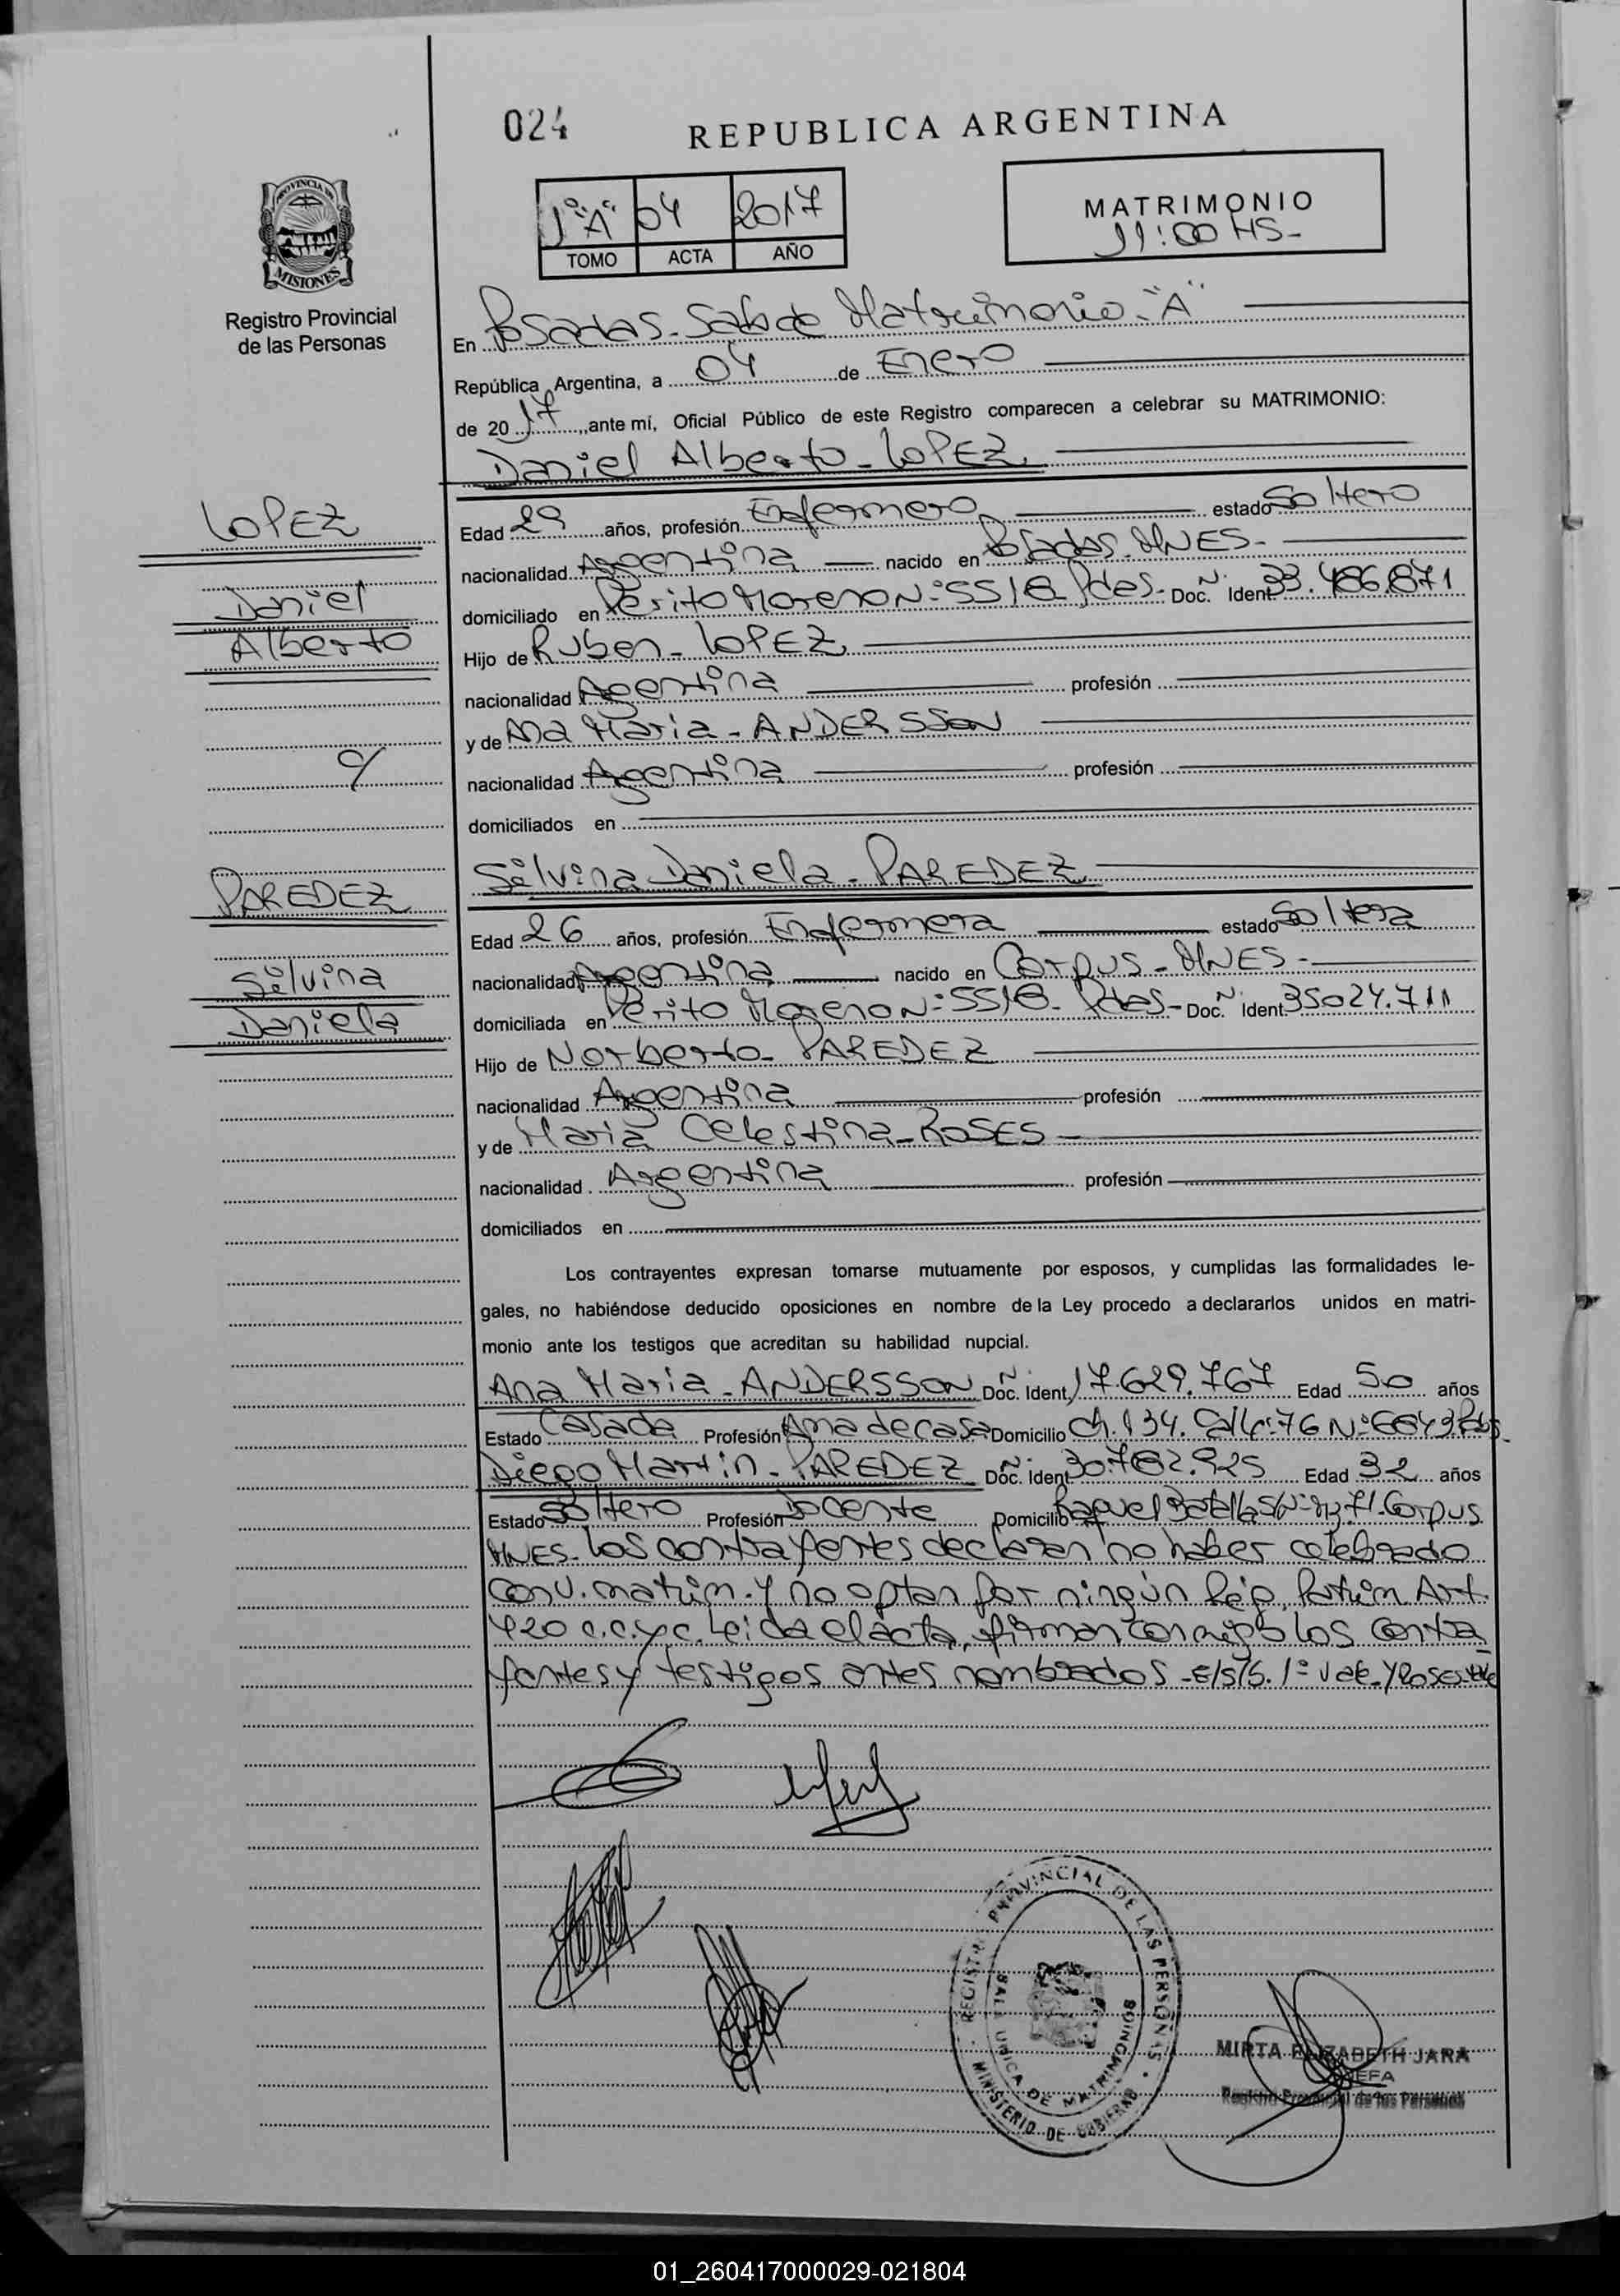 024
REPUBLICA ARGENTINA
1º "A" 04 2017
TOMO ACTA AÑO
MATRIMONIO
11:00 HS-
PROVINCIA DE
MISIONES
Registro Provincial
de las Personas
En Posadas - Sala de Matrimonio - "A"
República Argentina, a 04 de Enero
de 2017, ante mí, Oficial Público de este Registro comparecen a celebrar su MATRIMONIO:
Daniel Alberto - LOPEZ
LOPEZ
Daniel
Alberto
Edad 29 años, profesión Enfermero estado Soltero
nacionalidad Argentina nacido en Posadas - MNES -
domiciliado en Perito Moreno Nº: 5518 Pdes - Doc. Ident 33.486.871
Hijo de Ruben - LOPEZ
nacionalidad Argentina profesión
y de Ana Maria - ANDERSSON
nacionalidad Argentina profesión
domiciliados en
c/
PAREDEZ
Silvina
Daniela
Silvina Daniela - PAREDEZ
Edad 26 años, profesión Enfermera estado Soltera
nacionalidad Argentina nacido en Corpus - MNES -
domiciliada en Perito Moreno Nº: 5518 - Pdas - Doc. Ident 35024.711
Hijo de Norberto - PAREDEZ
nacionalidad Argentina profesión
y de Maria Celestina - ROSES -
nacionalidad Argentina profesión
domiciliados en
Los contrayentes expresan tomarse mutuamente por esposos, y cumplidas las formalidades le-
gales, no habiéndose deducido oposiciones en nombre de la Ley procedo a declararlos unidos en matri-
monio ante los testigos que acreditan su habilidad nupcial.
Ana Maria - ANDERSSON Doc. Ident 17.629.767 Edad 50 años
Estado Casada Profesión Ama de casa Domicilio Ch. 134. Calle: 76 Nº: 6643 Pdas.
Diego Martin - PAREDEZ Doc. Ident 30.782.925 Edad 32 años
Estado Soltero Profesión Docente Domicilio Raquel Corpus
MNES. Los contrayentes declaran no haber celebrado
conv. matrim. y no optan por ningún Rég. Patrim. Art.
420 c.c.y.c. Leida el acta, firman conmigo los contra-
yentes y testigos antes nombrados - E/S/S. 1º Vale. y Roses - Vale
REGISTRO PROVINCIAL DE LAS PERSONAS
SALA UNICA DE MATRIMONIOS
MINISTERIO DE GOBIERNO
MIRTA ELIZABETH JARA
JEFA
Registro Provincial de las Personas
01_260417000029-021804